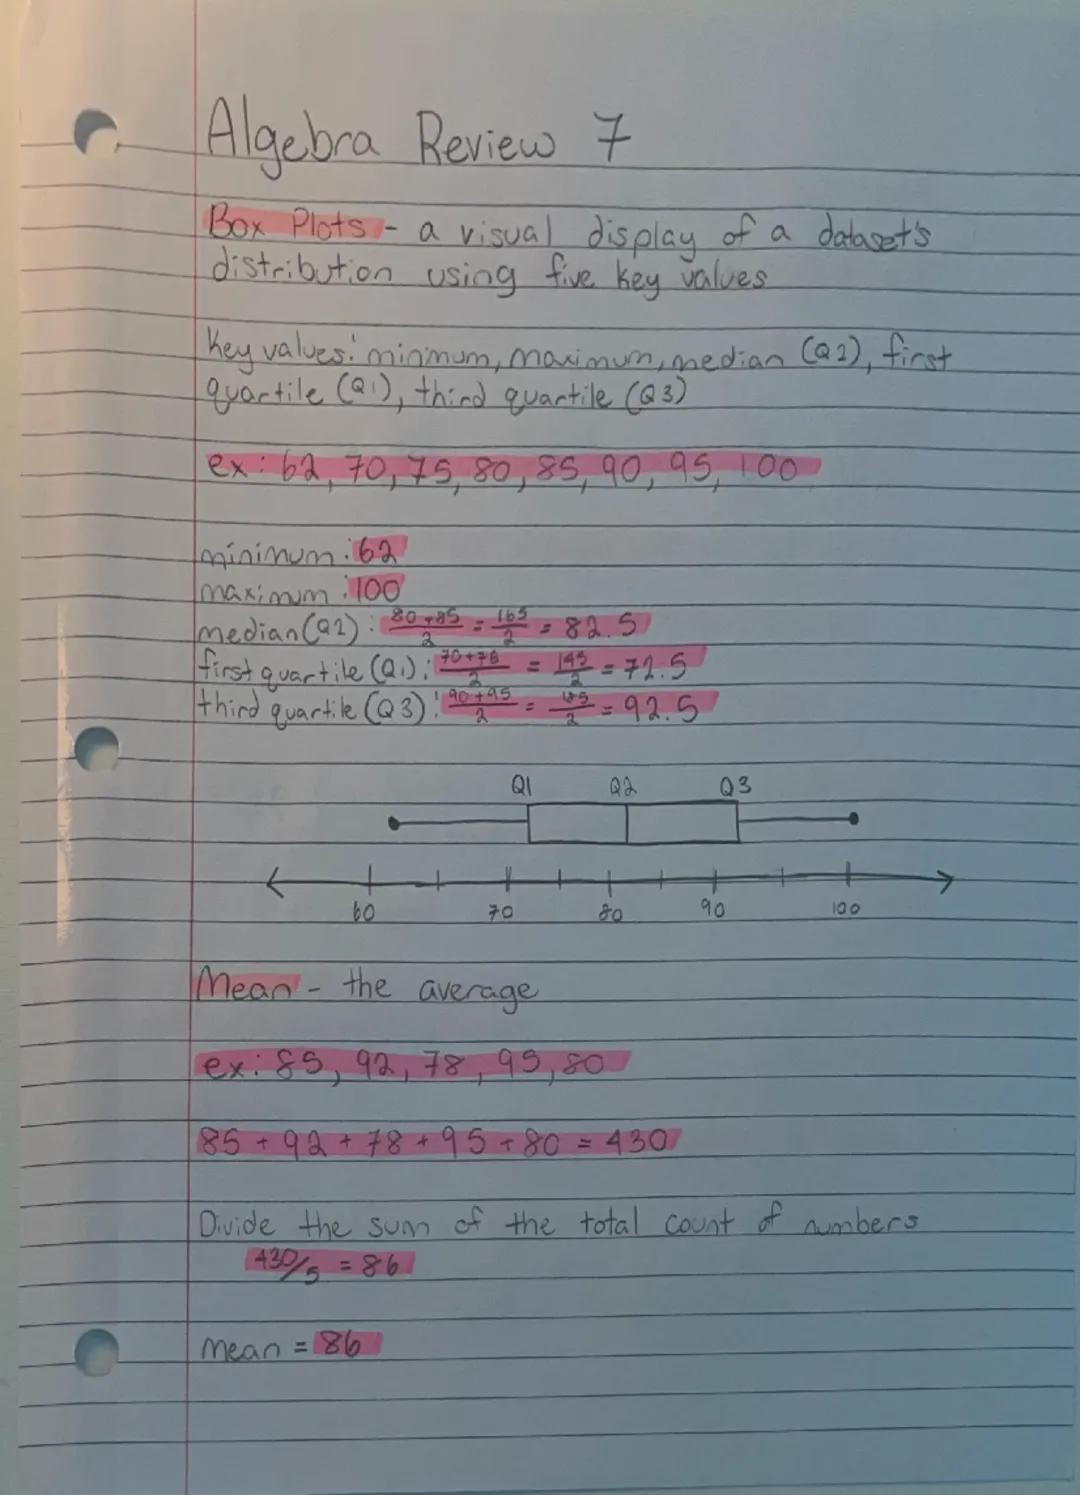 Algebra Review 7
Box Plots - a visual display of a dataset's
distribution using five key values
Key values: minimum, maximum, median (Q2), first
quartile (Q1), third quartile (Q3)
ex: 62, 70, 75, 80, 85, 90, 95, 100
minimum: 62
maximum: 100
median (Q2): 80+85/2 = 165/2 = 82.5
first quartile (Q1): 70+75/2 = 145/2 = 72.5
third quartile (Q3): 90+95/2 = 185/2 = 92.5
Q1 Q2 Q3
60 70 80 90 100
Mean - the average
ex: 85, 92, 78, 95, 80
85 + 92 + 78 + 95 + 80 = 430
Divide the sum of the total count of numbers
430/5 = 86
Mean = 86